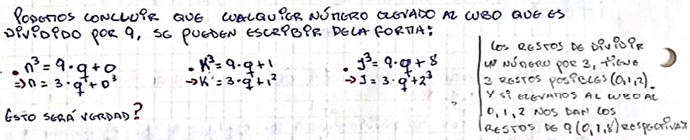 PODEMOS CONCLUIR QUE CUALQUIER NÚMERO ELEVADO AL CUBO QUE ES
DIVIDIDO POR 9, SE PUEDEN ESCRIBIR DE LA FORMA:
• n³ = 9·q+0 • K³ = 9·q+1 • J³ = 9·q+8
⇒ n = 3·q+0³ → K = 3·q+1² → J = 3·q+2³
ESTO SERÁ VERDAD?
LOS RESTOS DE DIVIDIR
UN NÚMERO POR 3, TIENE
3 RESTOS POSIBLES (0,1,2).
Y SI ELEVAMOS AL CUBO AL
0,1,2 NOS DAN LOS
RESTOS DE 9 (0,1,8) RESPECTIVAM